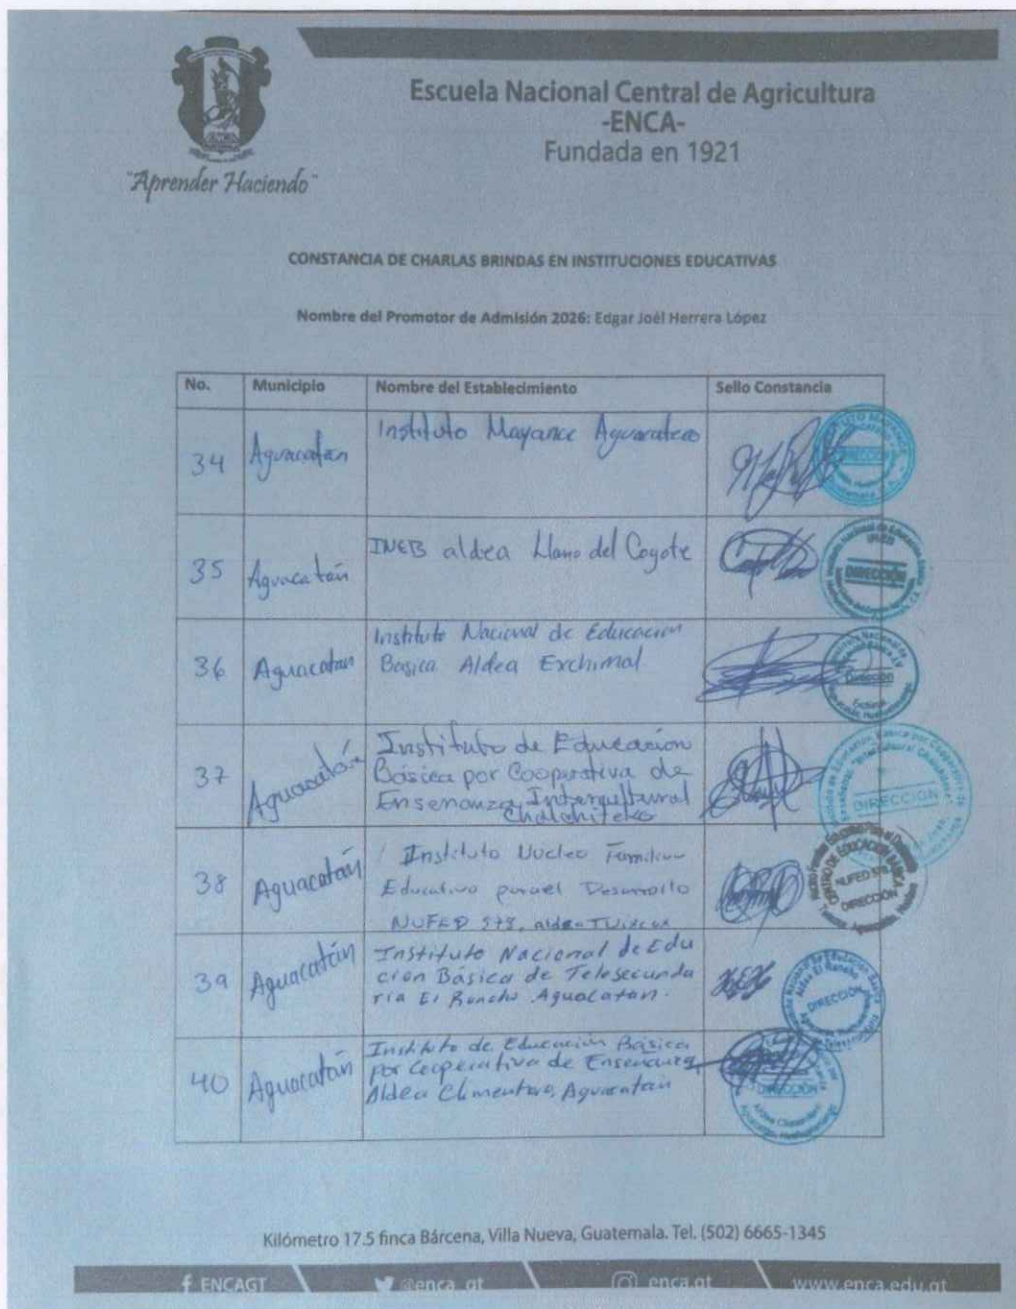 Escuela Nacional Central de Agricultura
-ENCA-
Fundada en 1921
"Aprender Haciendo"
CONSTANCIA DE CHARLAS BRINDAS EN INSTITUCIONES EDUCATIVAS
Nombre del Promotor de Admisión 2026: Edgar Joél Herrera López
No. Municipio Nombre del Establecimiento Sello Constancia
34 Aguacatan Instituto Mayance Aguacateco
DIRECCIÓN
35 Aguacatán INEB aldea Llano del Coyote
DIRECCIÓN
36 Aguacatan Instituto Nacional de Educacion
Basica Aldea Exchimal
Dirección
37 Aguacatán Instituto de Educación
Básica por Cooperativa de
Enseñanza Intercultural
Chalchiteko
DIRECCION
38 Aguacatán Instituto Núcleo Familiar
Educativo para el Desarrollo
NUFED 578, aldea
CENTRO DE EDUCACIÓN BÁSICA
NUFED 578
DIRECCIÓN
39 Aguacatán Instituto Nacional de Edu
cion Básica de Telesecunda
ria El Rancho Aguacatan.
Aldea El Rancho
DIRECCIÓN
40 Aguacatán Instituto de Educación Básica
por Cooperativa de Enseñanza,
Aldea Climentoro, Aguacatan
DIRECCIÓN
Kilómetro 17.5 finca Bárcena, Villa Nueva, Guatemala. Tel. (502) 6665-1345
ENCAGT @enca_gt enca.gt www.enca.edu.gt